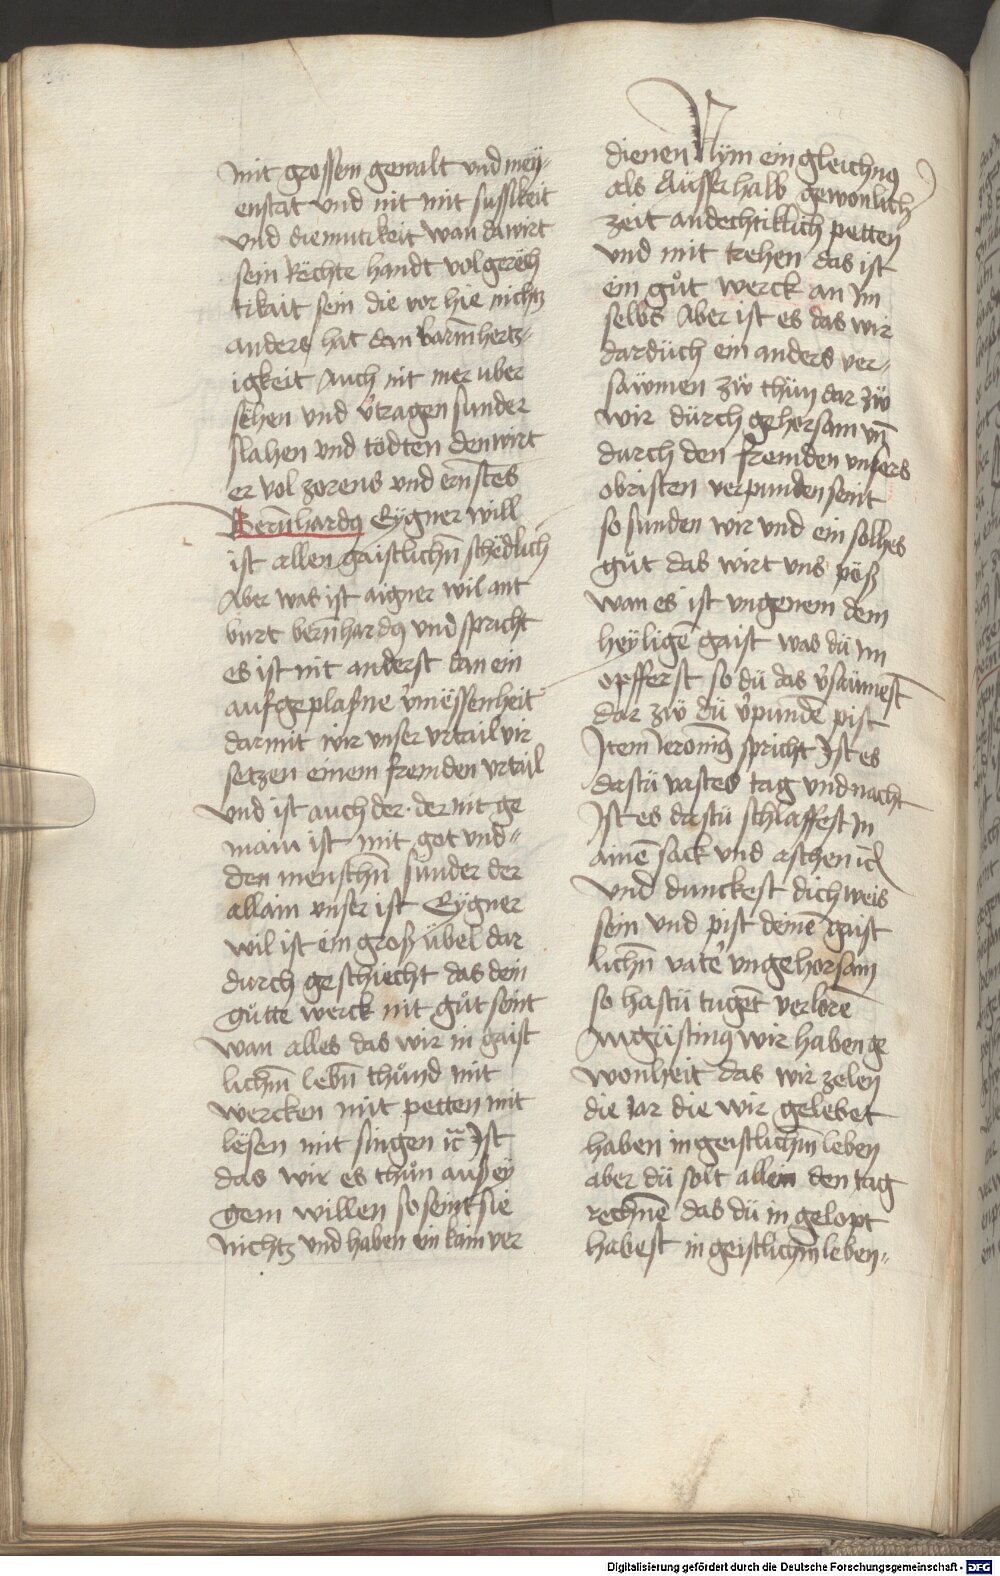 mit grossem gewalt vnd mey-
enstat vnd nit mit sussikeit
vnd diemutikeit wan da wirt
sein Rechte handt vol gerech
tikait sein die vor hie nichtz
anders hat dan barmhertz-
igkeit Auch nit mer uber
sehen vnd v̾tragen sunder
slahen vnd todten den wirt
er vol zorens vnd ernstes
Bern̄hardꝯ Eygner will
ist allen gaistlichn̄ schedlich
Aber was ist aigner wil ant
burt bern̄hardꝯ vnd spricht
es ist nit anderst dan ein
aufgeplaßne v̾messenheit
darmit wir vnser vrtail vir
setzen einem fremden vrtail
vnd ist auch der · der nit ge
main ist mit got vnd-
den menschn̄ sunder der
allain vnser ist Eygner
wil ist ein groß übel dar
durch geschiecht das dein
gůtte werck nit gůt seint
wan alles das wir in gaist
lichm̄ lebn̄ thůnd mit
wercken mit petten mit
lësen mit singen ꝛc̄ Ist
das wir es thůn auß ey
gem willen so seint sie
nichtz vnd haben ein kain ver
dienen Nym ein gleichnꝯ
als Ausserhalb gewonlich
zeit andechtiklich petten
vnd mit trehen das ist
ein gůt werck an im
selbs Aber ist es das wir
dardüch ein anders ver-
saẅmen zẅ thün dar zẅ
wir dürch gehorsam vn̄
durch den fremden vnsers
obristen verpunden seint
so sunden wir vnd ein solhes
gůt das wirt vns pöß
wan es ist vngenem dem
heyligē gaist was dü im
opfferst so dü das v̾säumest
dar zẅ dü v̾pundē pist
Item Ieronimꝯ spricht Ist es
dastü vastes tag vnd nacht
Ist es dastü schlaffest in
ainē sack vnd aschen ꝛc̄
vnd dunckest dich weis
sein vnd pist deinē gaist
lichn̄ vate̾ vngehorsam
so hastü tuget̄ verlorē
Augüstinꝯ wir haben ge
wonheit das wir zelen
die Iar die wir gelebet
haben in geistlichm̄ leben
aber dü solt allein den tag
rechnē das dü in gelopt
habest in geistlichm̄ leben-
Digitalisierung gefördert durch die Deutsche Forschungsgemeinschaft - DFG